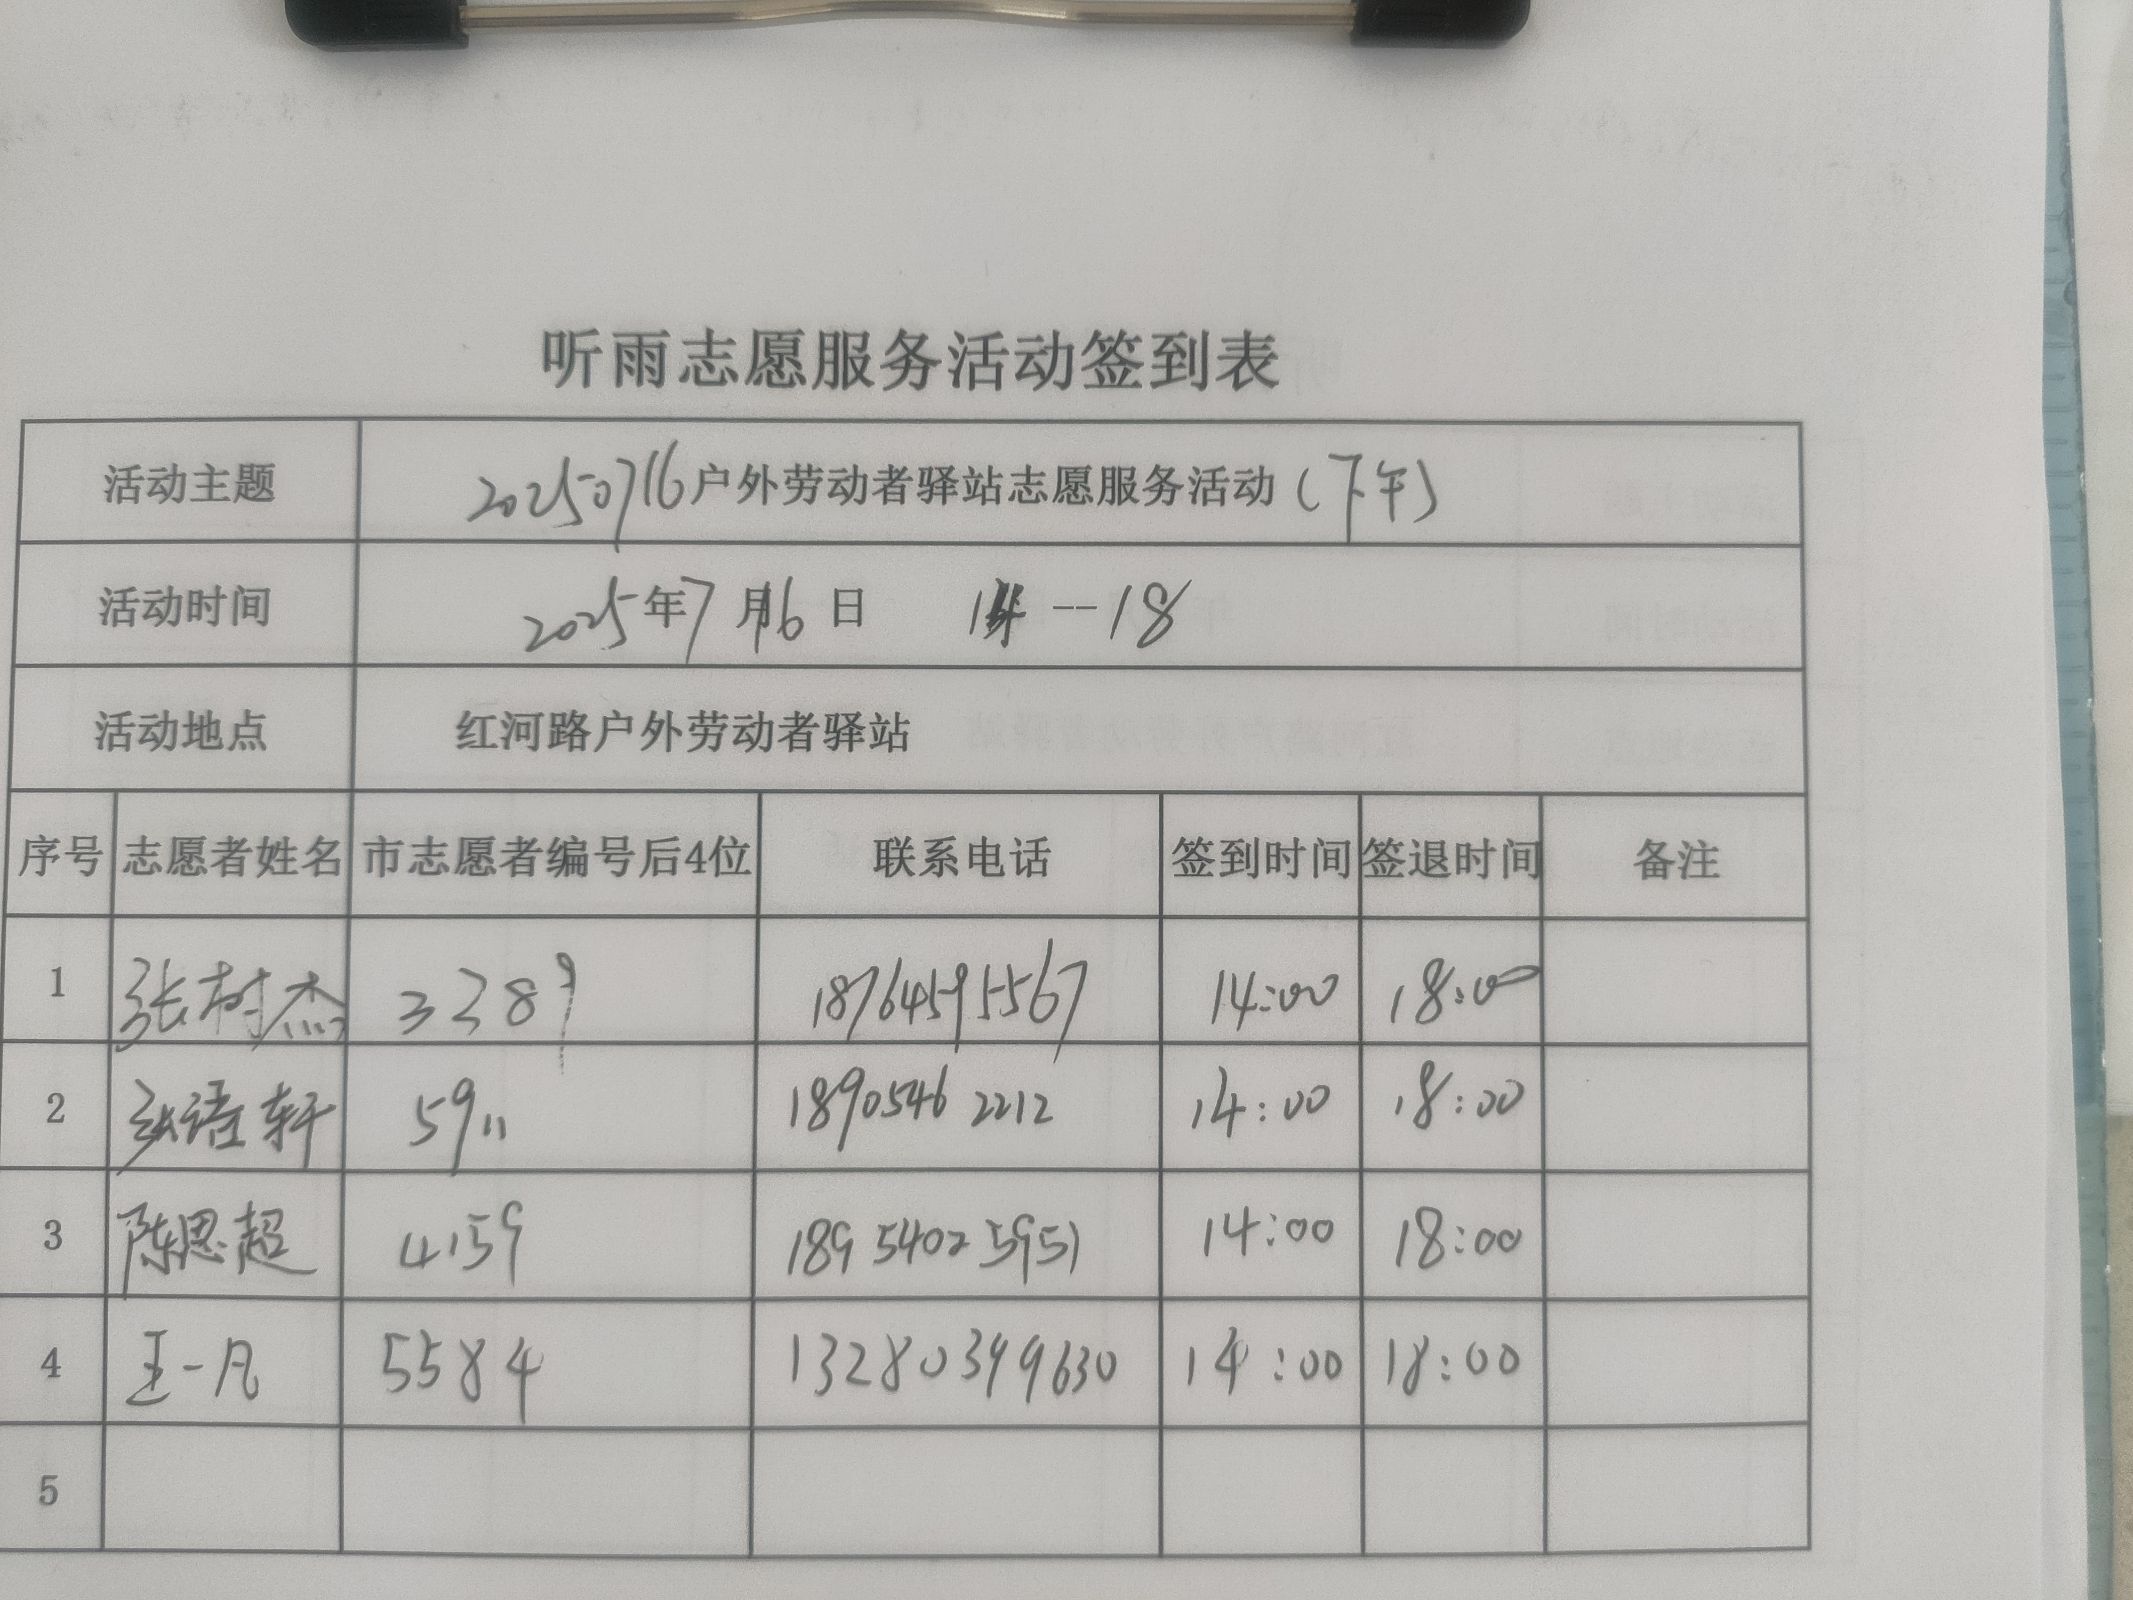 听雨志愿服务活动签到表
活动主题 20250716户外劳动者驿站志愿服务活动（下午）
活动时间 2025年7月16日 14--18
活动地点 红河路户外劳动者驿站
序号 志愿者姓名 市志愿者编号后4位 联系电话 签到时间 签退时间 备注
1 张树杰 3389 18764595567 14:00 18:00
2 语轩 5911 18905462212 14:00 18:00
3 陈思超 4159 18954025951 14:00 18:00
4 王一凡 5584 13280399630 14:00 18:00
5